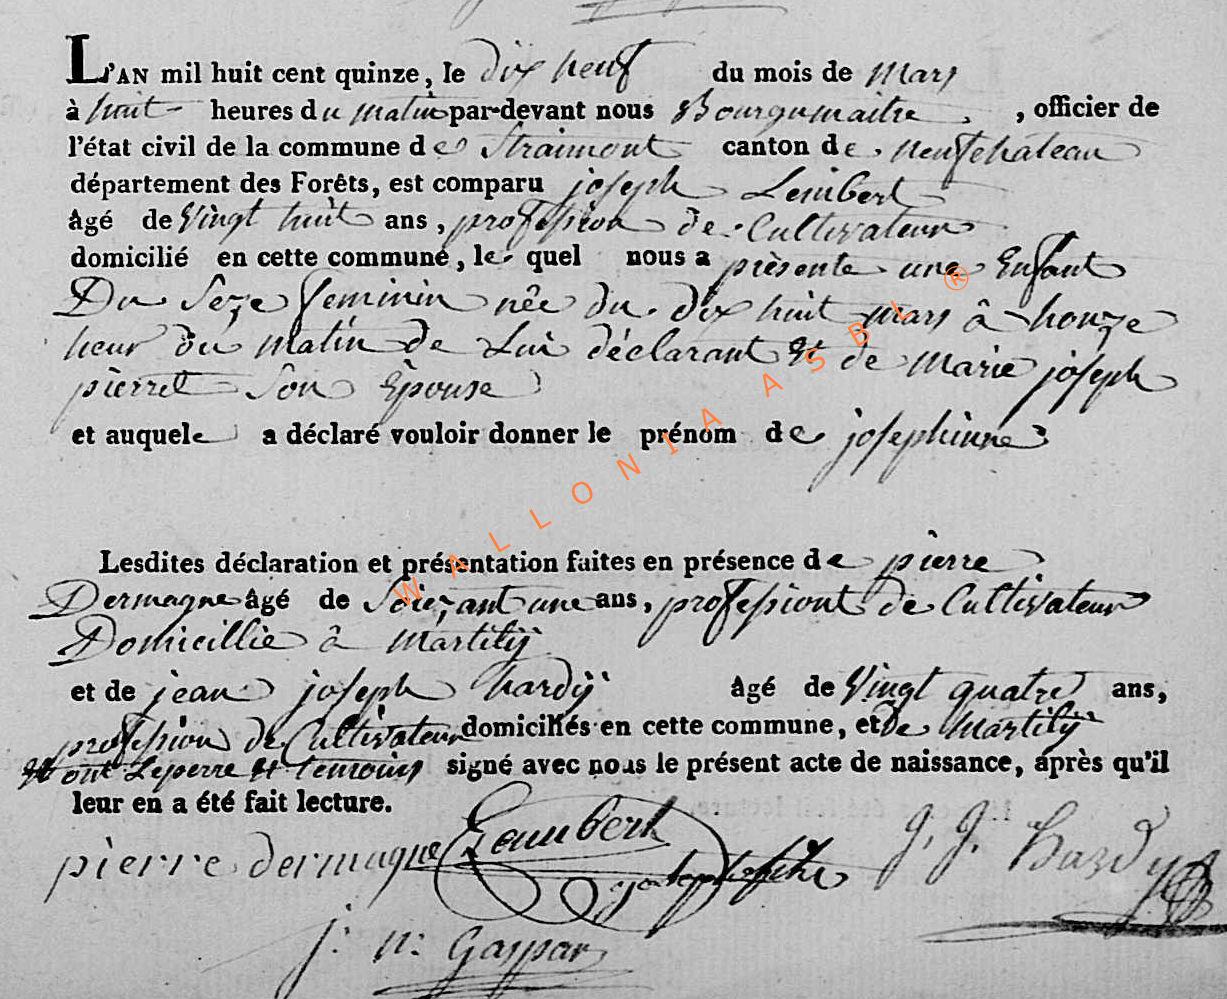 L'AN mil huit cent quinze, le dix neuf du mois de Mars
à huit heures du matin par-devant nous Bourgumaitre, officier de
l'état civil de la commune de Straimont canton de neufchateau
département des Forêts, est comparu joseph Lembert
âgé de Vingt huit ans, profession de Cultivateur
domicilié en cette commune, le quel nous a prèsente une Enfant
Du Sexe feminin née du dix huit mars â honze
heur du matin de Lui déclarant Et de Marie joseph
pierret Son Epouse
et auquele a déclaré vouloir donner le prénom de josephinne
Lesdites déclaration et présentation faites en présence de pierre
Dermagne âgé de Soiexant une ans, professiont de Cultivateur
Domicillie â Martilij
et de jean joseph hardij âgé de Vingt quatre ans,
profession de Cultivateur domiciliés en cette commune, et de Martilij
Et ont Leperre Et temoins signé avec nous le présent acte de naissance, après qu'il
leur en a été fait lecture.
pierre dermagne Lambert J. J. Hardy
j. n. Gaspar
WALLONIA ASBL ®